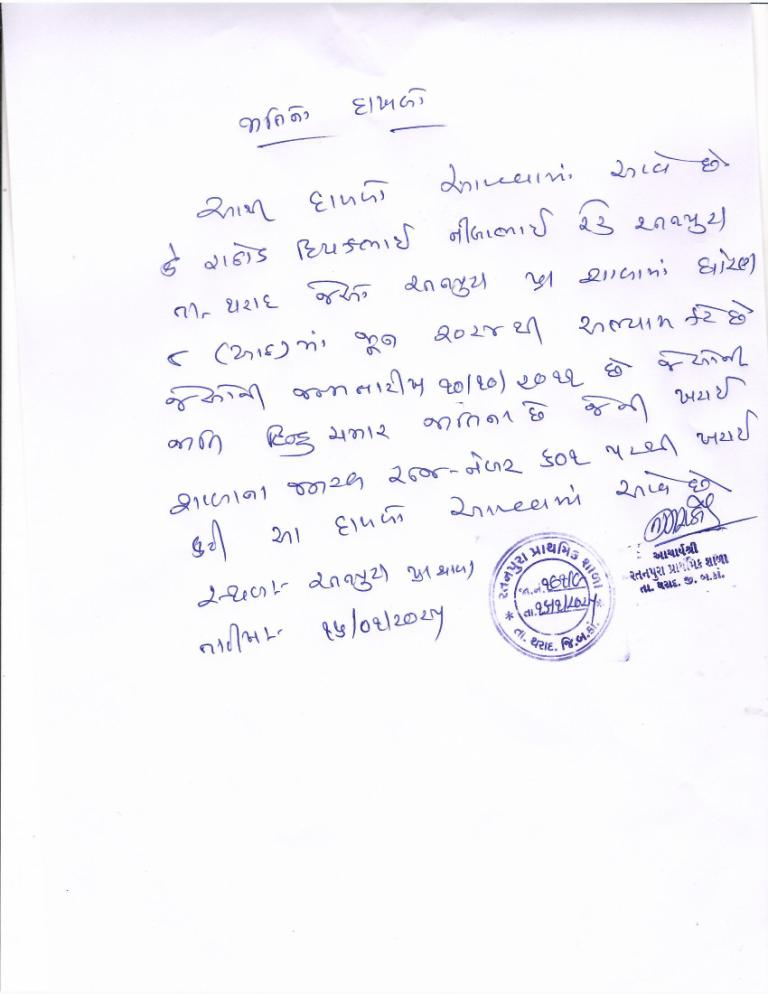 જાતિનો દાખલો
આથી દાખલો આપવામાં આવે છે
કે રાઠોડ દિપકભાઈ નીલાભાઈ રહે રતનપુરા
તા- થરાદ જેઓ રતનપુરા પ્રા શાળામાં ધોરણ
૮ (આઠ)માં જૂન ૨૦૨૪ થી અભ્યાસ કરે છે
જેઓની જન્મ તારીખ ૧૦/૧૦/૨૦૧૧ છે જેઓની
જાતિ હિન્દુ ચમાર જાતિના છે જેની ખરાઈ
શાળાના જનરલ રજી-નંબર ૬૦૧ પરથી ખરાઈ
કરી આ દાખલો આપવામાં આવે છે
સ્થળઃ- રતનપુરા પ્રા શાળા
તારીખઃ- ૧૫/૦૧/૨૦૨૫
રતનપુરા પ્રાથમિક શાળા
જા.નં.
તા. ૧૫/૧/૨૦૨૫
તા. થરાદ. જિ.બ.કાં.
આચાર્યશ્રી
રતનપુરા પ્રાથમિક શાળા
તા. થરાદ. જી. બ.કાં.